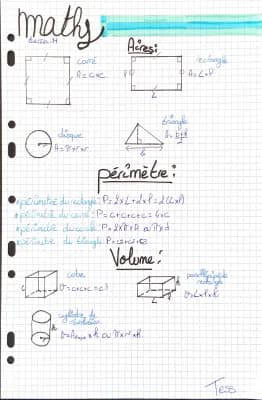 maths
Aires:
carré
A = C×C
rectangle
A = L×P
P
L
disque
A = π×r×r
triangle
A = b×h/2
b
périmètre:
*périmètre du rectangle: P = 2×L+2×P = 2(L+P)
*périmètre du carré: P = C+C+C+C = 4×C
*périmètre du cercle: P = 2×π×R ou π×d
*périmètre du triangle: P =
Volume:
cube
V = c×c×c = c3
parallélépipède
rectangle
V = L×P×h
cylindre de
révolution
ou π×r²×h
Tess